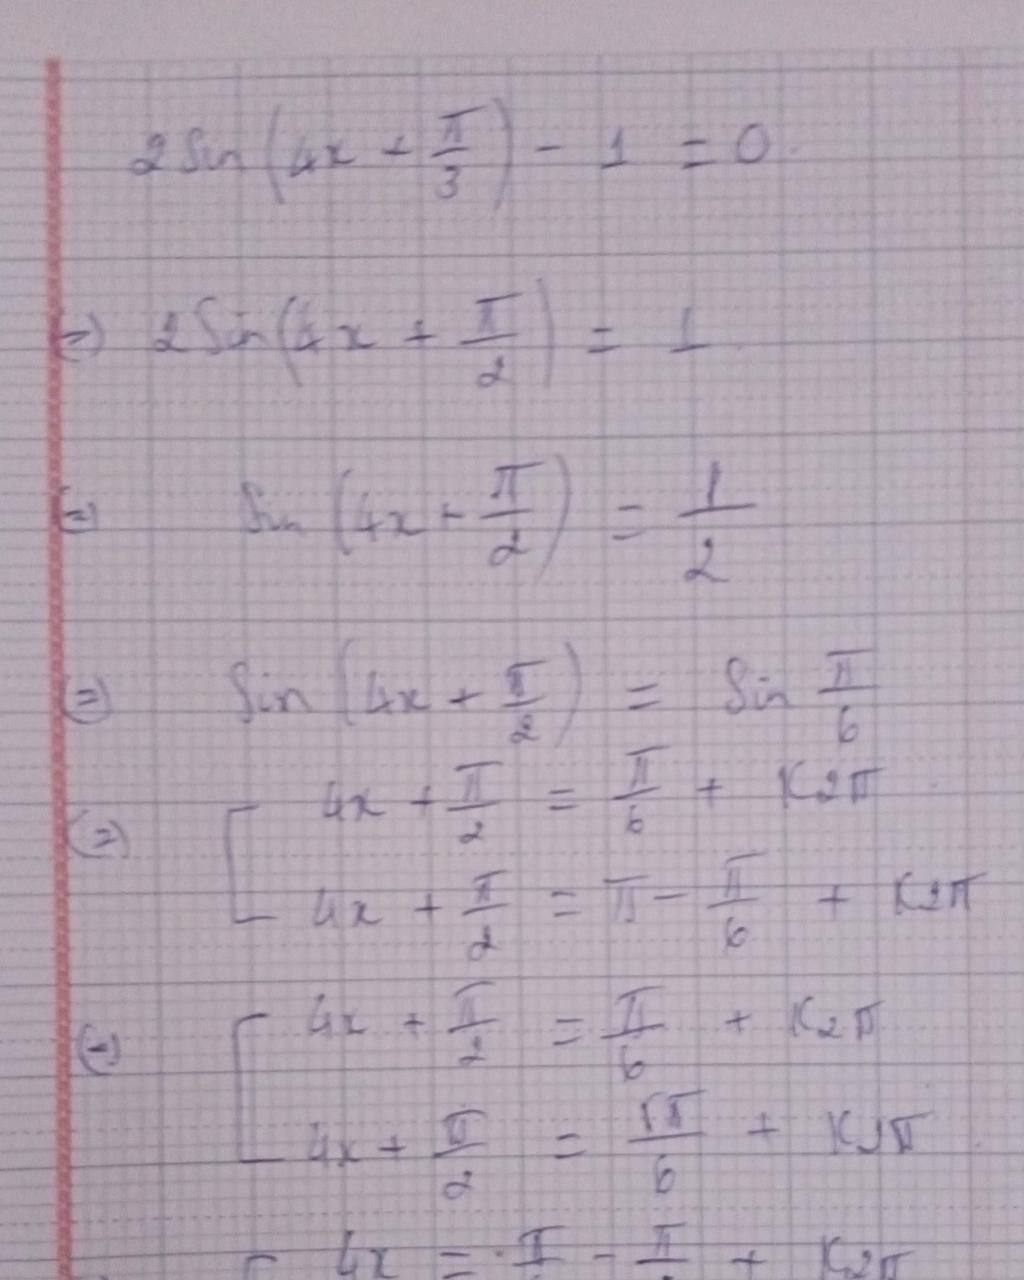 2 Sin (4x + π/3) - 1 = 0
(=) 2 Sin (4x + π/2) = 1
(=) Sin (4x + π/2) = 1/2
(=) Sin (4x + π/2) = Sin π/6
(=) [ 4x + π/2 = π/6 + K2π
4x + π/2 = π - π/6 + K2π
(=) [ 4x + π/2 = π/6 + K2π
4x + π/2 = 5π/6 + K2π
4x = π - π + K2π